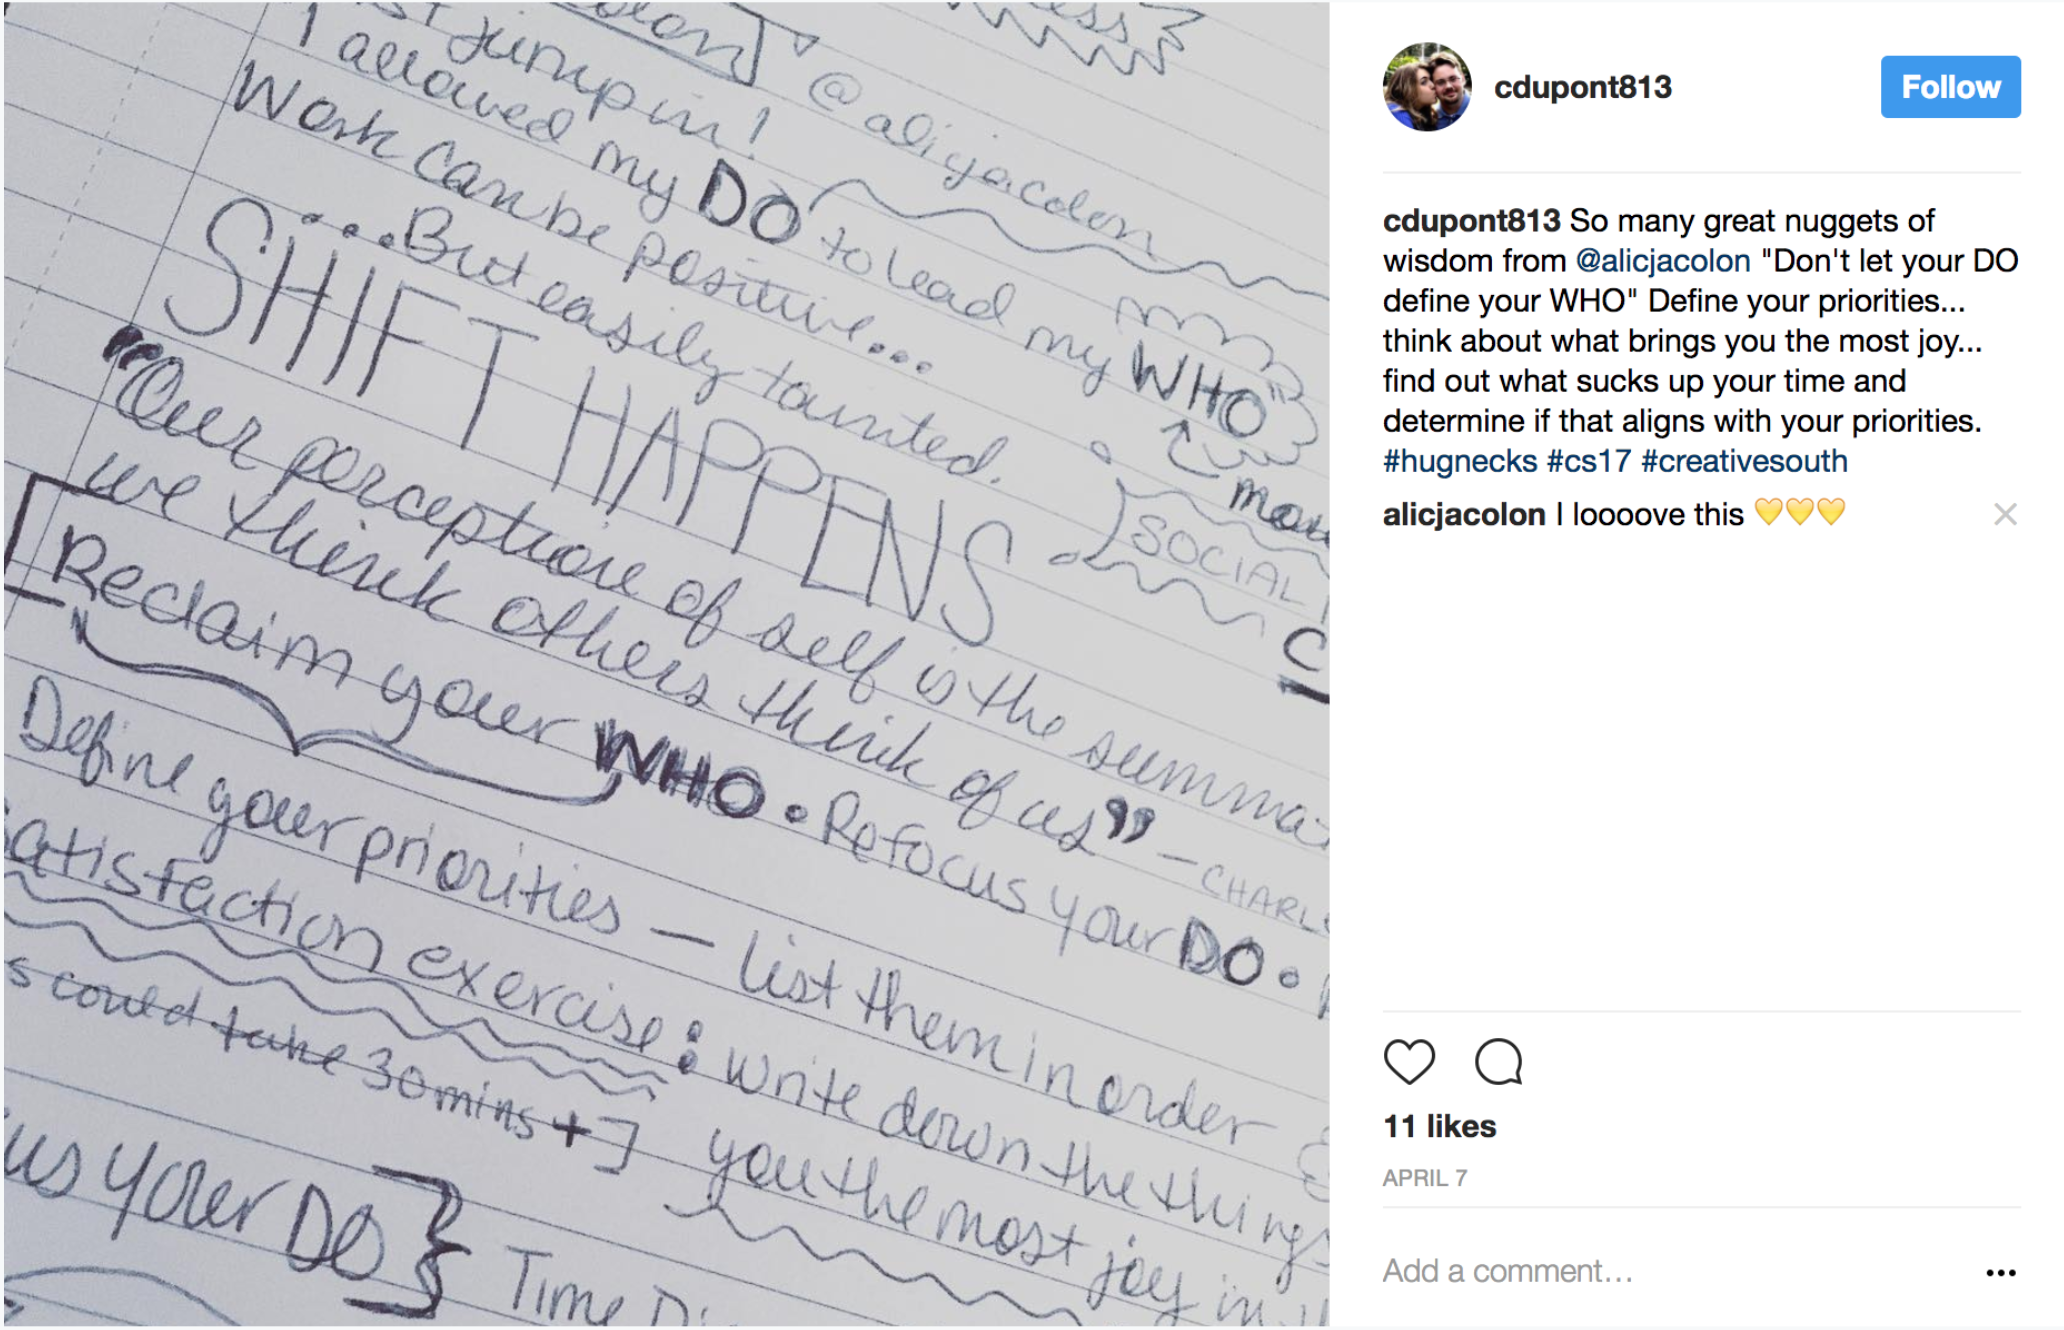 st jump in!
@alijacolon
I allowed my DO to lead my WHO
Work can be positive...
...But easily tainted.
SHIFT HAPPENS
SOCIAL
"Our perception of self is the summa
we think others think of us" - CHARL
Reclaim your WHO • Refocus your DO •
Define your priorities — list them in order
atisfaction exercise: write down the things
s could take 30mins +]
you the most joy in
us your DO } Time
cdupont813
Follow
cdupont813 So many great nuggets of
wisdom from @alicjacolon "Don't let your DO
define your WHO" Define your priorities...
think about what brings you the most joy...
find out what sucks up your time and
determine if that aligns with your priorities.
#hugnecks #cs17 #creativesouth
alicjacolon I loooove this 💛💛💛
11 likes
APRIL 7
Add a comment...